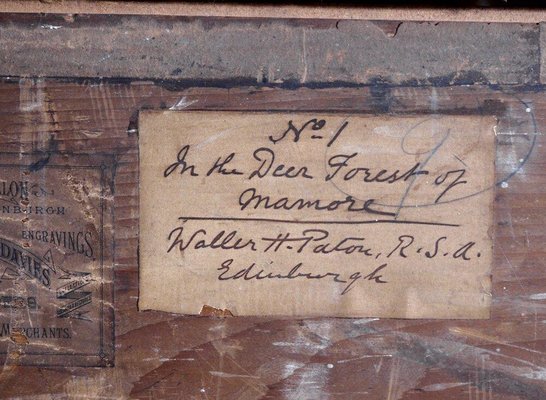 No 1
In the Deer Forest of
Mamore
Waller H. Paton, R.S.A.
Edinburgh
ENGRAVINGS,
DAVIES
MERCHANTS.